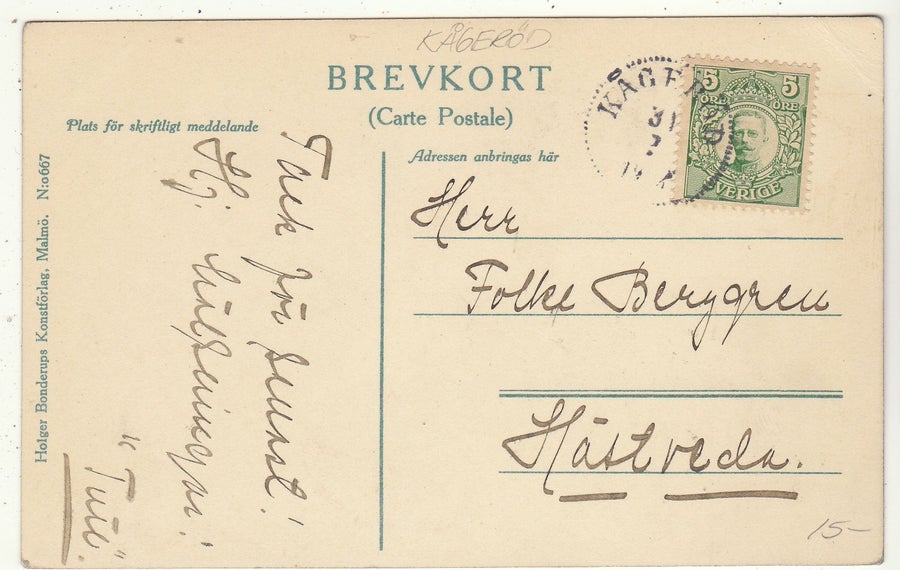 KÅGERÖD
BREVKORT
(Carte Postale)
Plats för skriftligt meddelande
Adressen anbringas här
Holger Bonderups Konstförlag, Malmö. N:o667
KÅGERÖD
31
7
5 5
ÖRE ÖRE
SVERIGE
Tack för senast!
Hj. hälsningar!
Herr
Folke Berggren
Hästveda.
15-